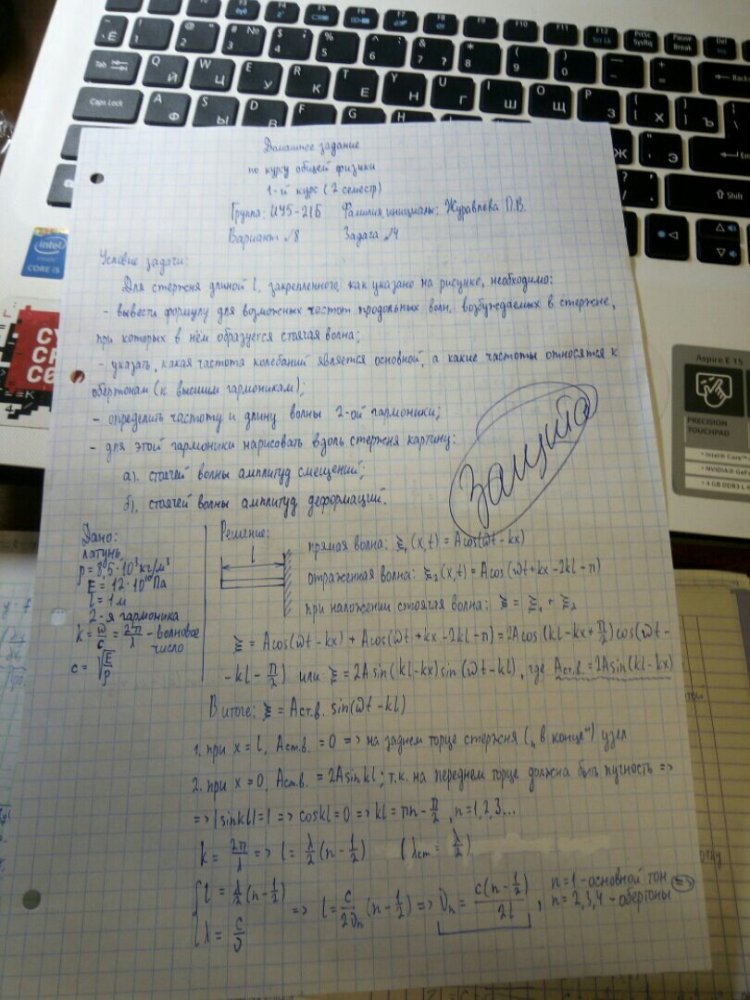 Домашнее задание
по курсу общей физики
1-й курс (2 семестр)
Группа: ИУ5-21Б Фамилия, инициалы: Журавлева П.В.
Вариант №8 Задача №4
Условие задачи:
Для стержня длиной l, закрепленного как указано на рисунке, необходимо:
- вывести формулу для возможных частот продольных волн, возбуждаемых в стержне,
при которых в нём образуется стоячая волна;
- указать, какая частота колебаний является основной, а какие частоты относятся к
обертонам (к высшим гармоникам);
- определить частоту и длину волны 2-ой гармоники;
- для этой гармоники нарисовать вдоль стержня картину:
а). стоячей волны амплитуд смещений;
б). стоячей волны амплитуд деформаций.
Защита
Дано:
латунь,
ρ = 8,5·10³ кг/м³
E = 12·10¹⁰ Па
l = 1 м
2-я гармоника
k = ω/c = 2π/λ - волновое
число
c = √(E/ρ)
Решение:
l
прямая волна: ξ₁(x,t) = Acos(ωt-kx)
отраженная волна: ξ₂(x,t) = Acos(ωt+kx-2kl-π)
при наложении стоячая волна: ξ = ξ₁ + ξ₂
ξ = Acos(ωt-kx) + Acos(ωt+kx-2kl-π) = 2Acos(kl-kx+π/2)cos(ωt-
-kl-π/2) или ξ = 2Asin(kl-kx)sin(ωt-kl), где Aст.в. = 2Asin(kl-kx)
В итоге: ξ = Aст.в. sin(ωt-kl)
1. при x = l, Aст.в. = 0 => на заднем торце стержня („в конце") узел
2. при x = 0, Aст.в. = 2Asinkl; т.к. на переднем торце должна быть пучность =>
=> |sinkl| = 1 => coskl = 0 => kl = πn - π/2, n = 1,2,3...
k = 2π/λ => l = λ/2 (n - 1/2) (λст = λ/2)
{ l = λ/2 (n - 1/2)
λ = c/ν
=> l = c/2νn (n - 1/2) => νn = c(n - 1/2)/2l, n = 1 - основной тон
n = 2,3,4 - обертоны =>
Caps Lock
Tab
Back
Shift
Ent
Pause
Break
PrtSc
SysRq
Scr Lk
intel inside
CORE i5
Aspire E 15
PRECISION
TOUCHPAD